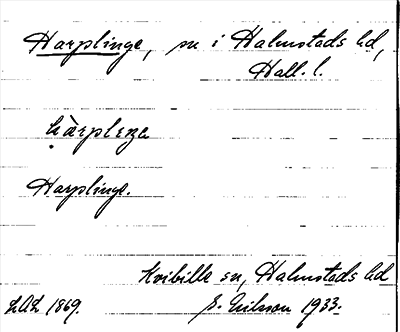 Harplinge, sn i Halmstads hd,
Hall. l.
Harplinge.
Kvibille sn, Halmstads hd
LAL 1869. E. Nilsson 1933.